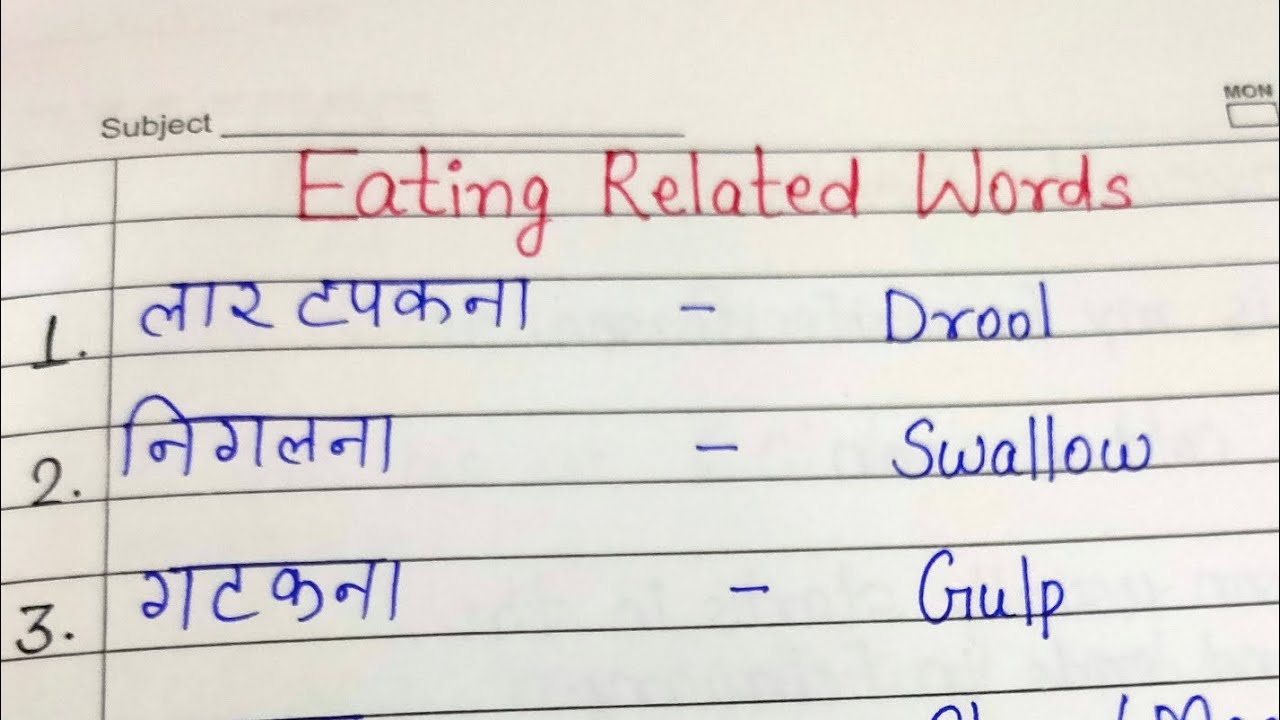 MON
Subject
Eating Related Words
1. लार टपकना - Drool
2. निगलना - Swallow
3. गटकना - Gulp